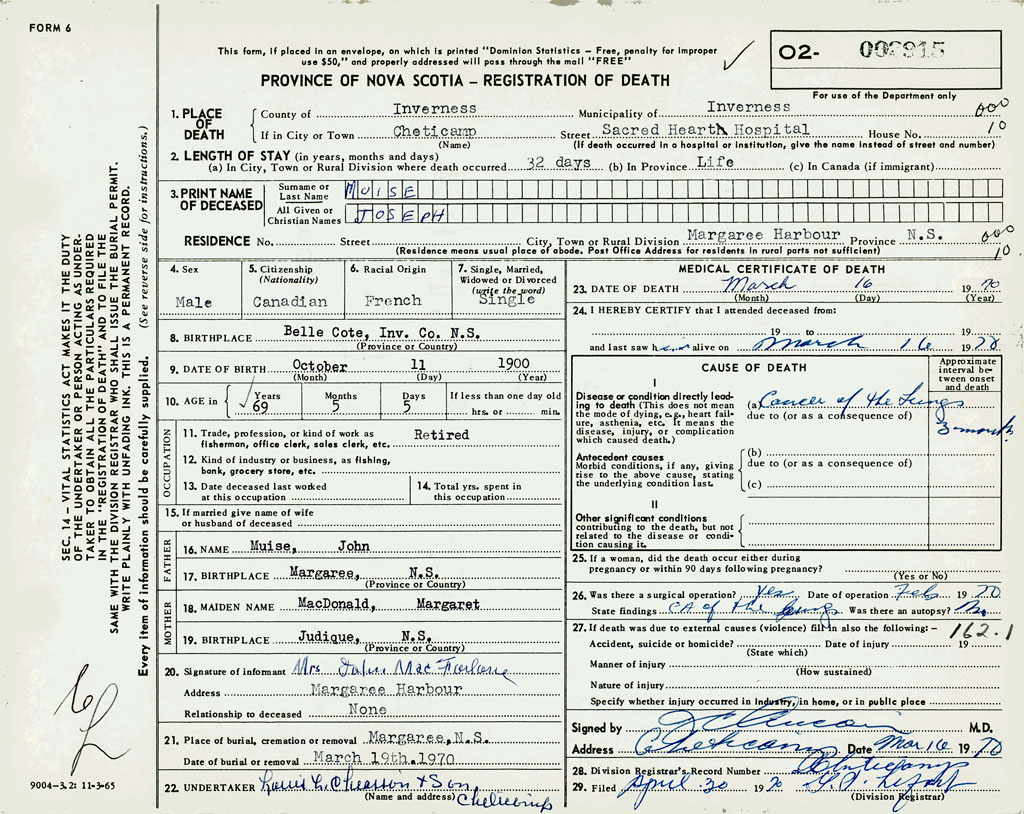 FORM 6
This form, if placed in an envelope, on which is printed "Dominion Statistics – Free, penalty for improper
use $50," and properly addressed will pass through the mail "FREE"
PROVINCE OF NOVA SCOTIA – REGISTRATION OF DEATH
02- 002915
For use of the Department only
1. PLACE OF DEATH
County of Inverness Municipality of Inverness 000
If in City or Town Cheticamp Street Sacred Heart Hospital House No. 10
(Name) (If death occurred in a hospital or institution, give the name instead of street and number)
2. LENGTH OF STAY (in years, months and days)
(a) In City, Town or Rural Division where death occurred 32 days (b) In Province Life (c) In Canada (if immigrant)
3. PRINT NAME OF DECEASED
Surname or Last Name MUISE
All Given or Christian Names JOSEPH
RESIDENCE No. Street City, Town or Rural Division Margaree Harbour Province N.S. 000
(Residence means usual place of abode. Post Office Address for residents in rural parts not sufficient) 10
4. Sex
Male
5. Citizenship
(Nationality)
Canadian
6. Racial Origin
French
7. Single, Married,
Widowed or Divorced
(write the word)
Single
8. BIRTHPLACE Belle Cote, Inv. Co. N.S.
(Province or Country)
9. DATE OF BIRTH October 11 1900
(Month) (Day) (Year)
10. AGE in
Years Months Days If less than one day old
69 5 5 hrs. or min.
OCCUPATION
11. Trade, profession, or kind of work as Retired
fisherman, office clerk, sales clerk, etc.
12. Kind of industry or business, as fishing,
bank, grocery store, etc.
13. Date deceased last worked
at this occupation
14. Total yrs. spent in
this occupation
15. If married give name of wife
or husband of deceased
FATHER
16. NAME Muise, John
17. BIRTHPLACE Margaree, N.S.
(Province or Country)
MOTHER
18. MAIDEN NAME MacDonald, Margaret
19. BIRTHPLACE Judique, N.S.
(Province or Country)
20. Signature of informant Mrs John MacFarlane
Address Margaree Harbour
Relationship to deceased None
21. Place of burial, cremation or removal Margaree, N.S.
Date of burial or removal March 19th. 1970
22. UNDERTAKER & Son,
(Name and address) Cheticamp
MEDICAL CERTIFICATE OF DEATH
23. DATE OF DEATH March 16 1970
(Month) (Day) (Year)
24. I HEREBY CERTIFY that I attended deceased from:
19 to 19
and last saw him alive on March 16 1970
CAUSE OF DEATH
Approximate
interval be-
tween onset
and death
I
Disease or condition directly lead-
ing to death (This does not mean
the mode of dying, e.g., heart fail-
ure, asthenia, etc. It means the
disease, injury, or complication
which caused death.)
(a) Cancer of the Lungs
due to (or as a consequence of)
3 months
Antecedent causes
Morbid conditions, if any, giving
rise to the above cause, stating
the underlying condition last.
(b)
due to (or as a consequence of)
(c)
II
Other significant conditions
contributing to the death, but not
related to the disease or condi-
tion causing it.
25. If a woman, did the death occur either during
pregnancy or within 90 days following pregnancy?
(Yes or No)
26. Was there a surgical operation? Yes Date of operation Feb 1970
State findings CA of the lung Was there an autopsy? No
27. If death was due to external causes (violence) fill in also the following: – 162.1
Accident, suicide or homicide? Date of injury 19
(State which)
Manner of injury
(How sustained)
Nature of injury
Specify whether injury occurred in Industry, in home, or in public place
Signed by M.D.
Address Cheticamp Date Mar 16 1970
28. Division Registrar's Record Number Cheticamp
29. Filed April 30 1970
(Division Registrar)
SEC. 14 – VITAL STATISTICS ACT MAKES IT THE DUTY
OF THE UNDERTAKER OR PERSON ACTING AS UNDER-
TAKER TO OBTAIN ALL THE PARTICULARS REQUIRED
IN THE "REGISTRATION OF DEATH" AND TO FILE THE
SAME WITH THE DIVISION REGISTRAR WHO SHALL ISSUE THE BURIAL PERMIT.
WRITE PLAINLY WITH UNFADING INK. THIS IS A PERMANENT RECORD.
Every item of information should be carefully supplied. (See reverse side for instructions.)
9004–3.2: 11-3-65